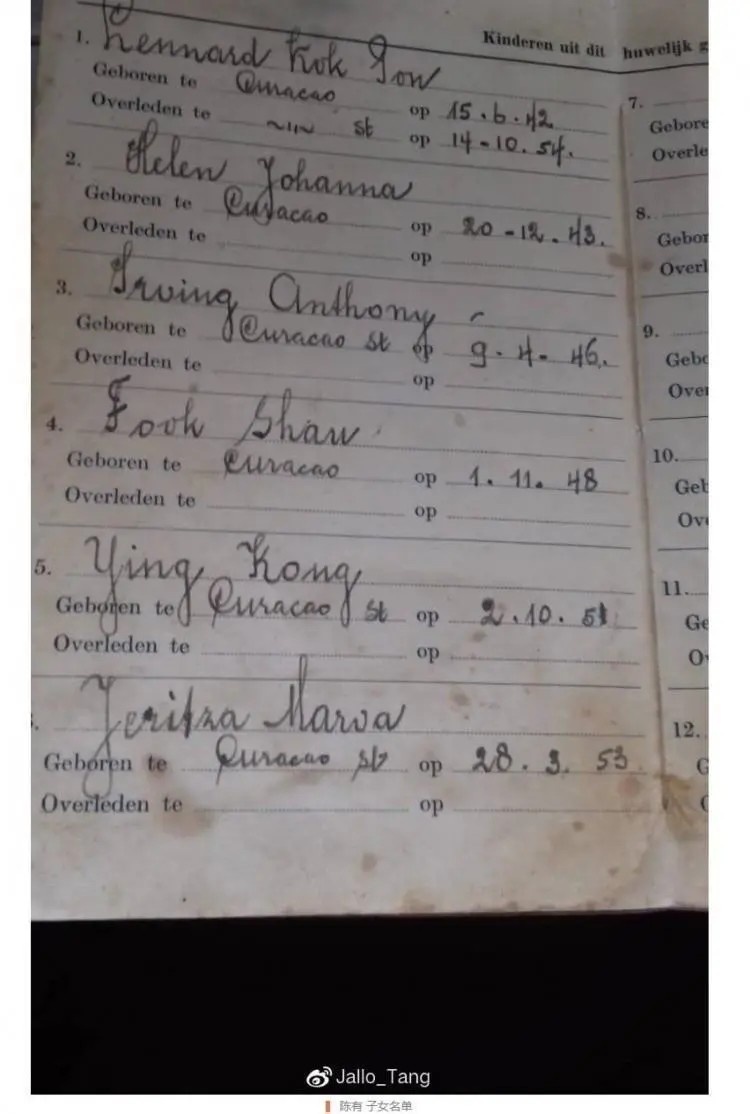 Kinderen uit dit huwelijk g
1. Lennard Kok Gow
Geboren te Curacao op 15.6.42
Overleden te ~"~ st op 14-10.54.
2. Helen Johanna
Geboren te Curacao op 20-12.43.
Overleden te op
3. Irving Anthony
Geboren te Curacao st op 9.4-46.
Overleden te op
4. Fook Shaw
Geboren te Curacao op 1.11.48
Overleden te op
5. Ying Kong
Geboren te Curacao st op 2.10.51
Overleden te op
Jeritza Marva
Geboren te Curacao st op 28.3.53
Overleden te op
7.
Gebore
Overle
8.
Gebor
Overl
9.
Gebo
Over
10.
Geb
Ove
11.
Ge
O
12.
G
Jallo_Tang
陈有 子女名单